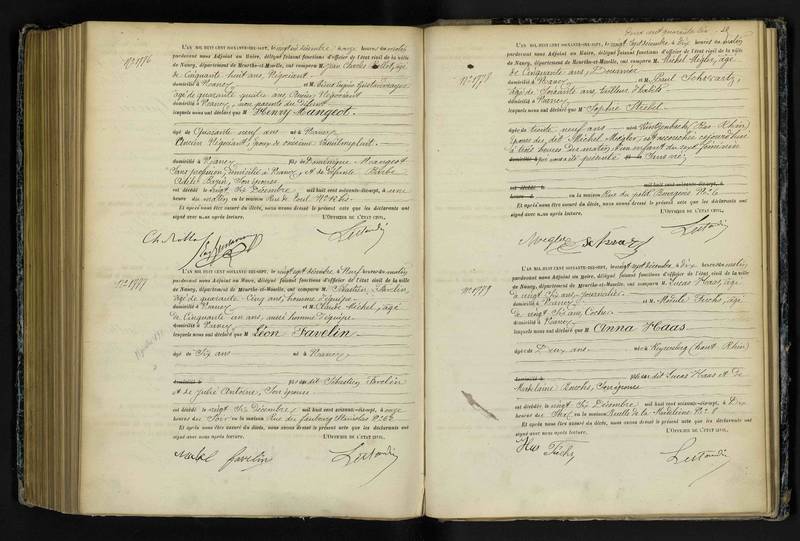 N° 1776
L'AN MIL HUIT CENT SOIXANTE-DIX-SEPT, le vingt six décembre à onze heures du matin
pardevant nous Adjoint au Maire, délégué faisant fonctions d'officier de l'état civil de la ville
de Nancy, département de Meurthe-et-Moselle, ont comparu M. Jean Charles âgé
de Cinquante huit ans, Négociant
domicilié à Nancy et M. Pierre Eugène Gustave
âgé de quarante quatre ans, Ancien Négociant
domicilié à Nancy, non parents du Défunt
lesquels nous ont déclaré que M Henry Mangeot
âgé de Quarante neuf ans né à Nancy
Ancien Négociant, époux de
domicilié à Nancy fils de Dominique Mangeot
Sans profession, domicilié à Nancy, et de défunte Barbe
Adèle Bazin, Son épouse
est décédé le vingt six Décembre mil huit cent soixante-dix-sept, à une
heure du matin en la maison Rue de N° 18 bis
Et après nous être assuré du décès, nous avons dressé le présent acte que les déclarants ont
signé avec nous après lecture. L'OFFICIER DE L'ÉTAT CIVIL,
N° 1777
L'AN MIL HUIT CENT SOIXANTE-DIX-SEPT, le vingt sept décembre à Neuf heures du matin
pardevant nous Adjoint au Maire, délégué faisant fonctions d'officier de l'état civil de la ville
de Nancy, département de Meurthe-et-Moselle, ont comparu M. Sébastien Favelin
âgé de quarante Cinq ans, homme d'équipe
domicilié à Nancy et M. Claude Michel, âgé
de Cinquante un ans, aussi homme d'équipe
domicilié à Nancy
lesquels nous ont déclaré que M Léon Favelin
âgé de Six ans né à Nancy
domicilié à fils du dit Sébastien Favelin
et de Julie Antoine, Son épouse
est décédé le vingt six Décembre mil huit cent soixante-dix-sept, à onze
heures du Soir en la maison Rue du faubourg Stanislas N° 62
Et après nous être assuré du décès, nous avons dressé le présent acte que les déclarants ont
signé avec nous après lecture. L'OFFICIER DE L'ÉTAT CIVIL,
favelin
N° 1778
L'AN MIL HUIT CENT SOIXANTE-DIX-SEPT, le vingt sept décembre à Dix heures du matin
pardevant nous Adjoint au Maire, délégué faisant fonctions d'officier de l'état civil de la ville
de Nancy, département de Meurthe-et-Moselle, ont comparu M. Michel Mogler, âgé
de Cinquante ans,
domicilié à Nancy et M. Paul Schwartz,
âgé de Soixante ans, tailleur d'habits
domicilié à Nancy
lesquels nous ont déclaré que M Sophie
âgé de trente neuf ans née à (Bas-Rhin)
épouse du dit Michel Mogler, est accouchée cejourd'hui
à trois heures du matin, d'un enfant du sexe féminin
domicilié à qui nous a été présenté Sans vie
est décédé le mil huit cent soixante-dix-sept, à
heure du en la maison Rue du petit Bourgeois N° 6
Et après nous être assuré du décès, nous avons dressé le présent acte que les déclarants ont
signé avec nous après lecture. L'OFFICIER DE L'ÉTAT CIVIL,
Mogler
N° 1779
L'AN MIL HUIT CENT SOIXANTE-DIX-SEPT, le vingt sept décembre à Dix heures du matin
pardevant nous Adjoint au Maire, délégué faisant fonctions d'officier de l'état civil de la ville
de Nancy, département de Meurthe-et-Moselle, ont comparu M. Lucas Haas, âgé
de vingt six ans, journalier
domicilié à Nancy et M. âgé
de vingt six ans, Cocher
domicilié à Nancy
lesquels nous ont déclaré que M Anna Haas
âgé de Deux ans née à Keysersberg (haut Rhin)
domicilié à fille du dit Lucas Haas et de
Madelaine Son épouse
est décédé le vingt Six Décembre mil huit cent soixante-dix-sept, à Dix
heures du Soir en la maison Ruelle de la Madeleine N° 8
Et après nous être assuré du décès, nous avons dressé le présent acte que les déclarants ont
signé avec nous après lecture. L'OFFICIER DE L'ÉTAT CIVIL,